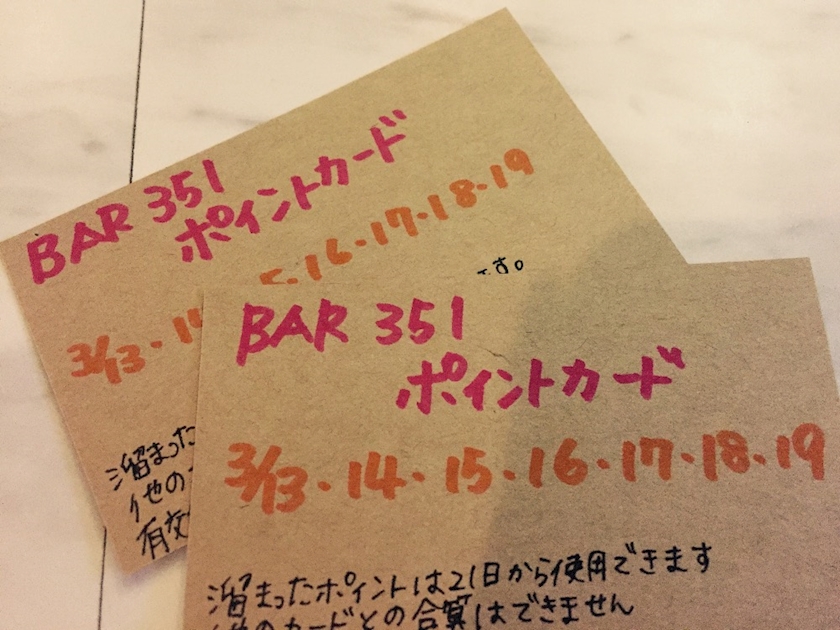 BAR 351
ポイントカード
3/13・14
5・16・17・18・19
す。
溜まった
他の
有効
BAR 351
ポイントカード
3/13・14・15・16・17・18・19
溜まったポイントは21日から使用できます
他のカードとの合算はできません